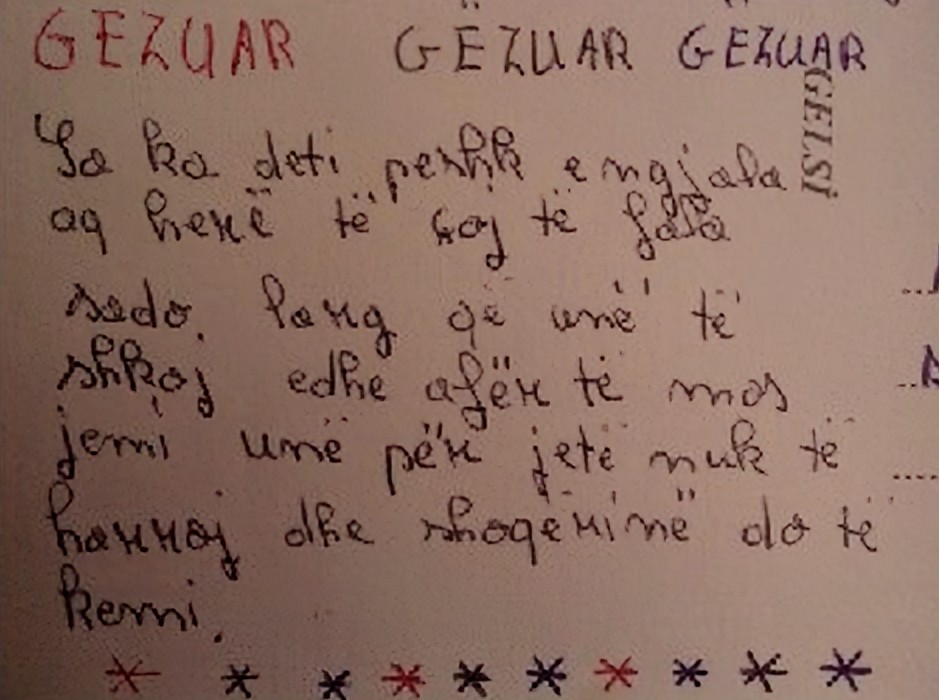 GEZUAR GËZUAR GËZUAR
GELSI
Sa ka deti peshk e ngjala
aq herë të uroj të fala
sado larg që unë të
shkoj edhe afër të mos
jemi unë për jetë nuk të
harroj dhe shoqërinë do të
kemi.